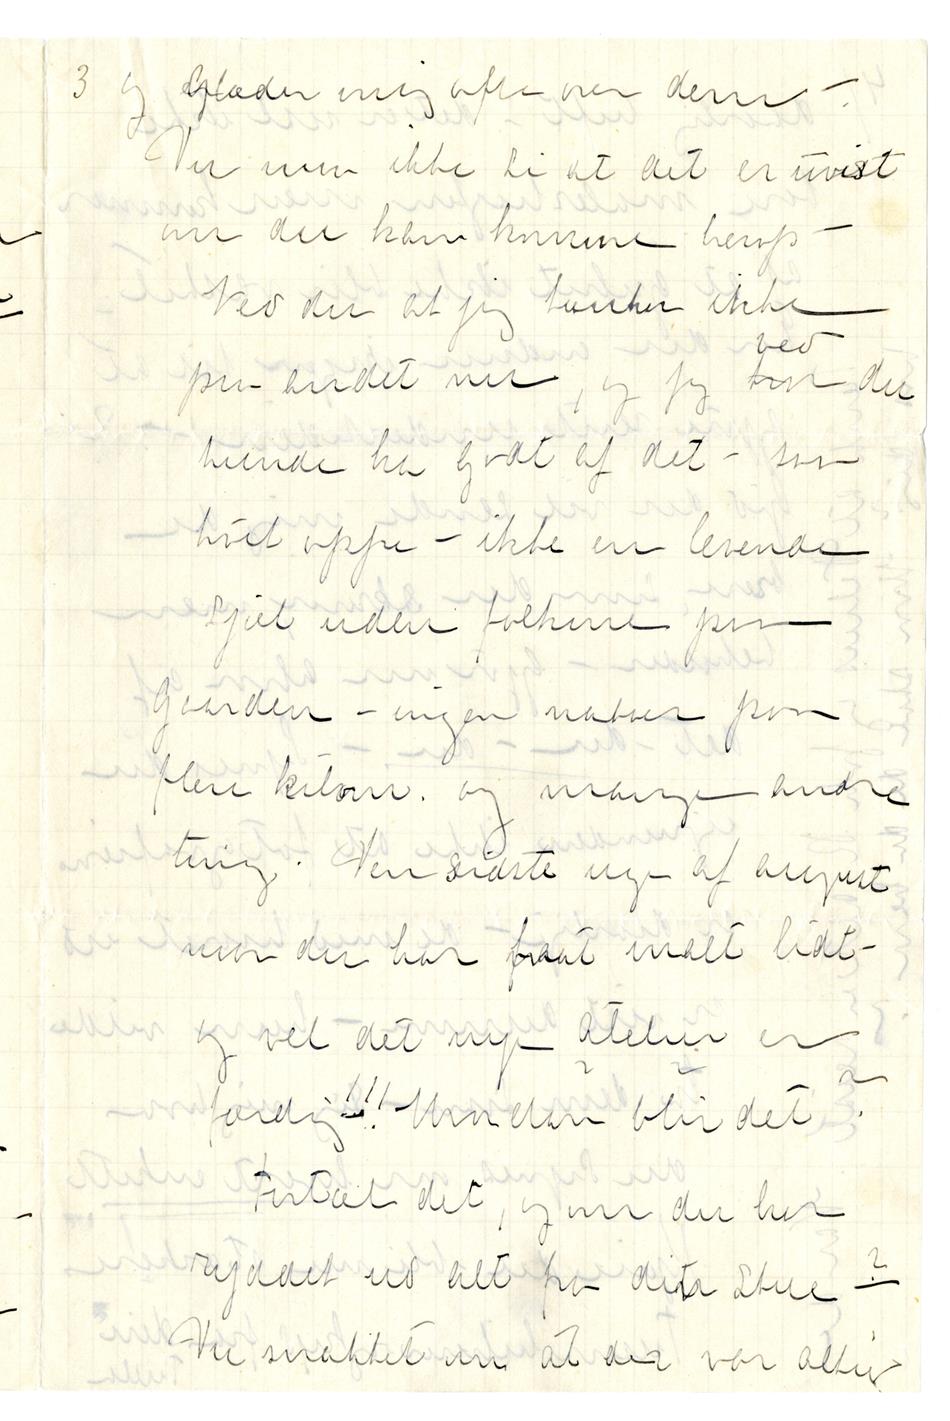 3 og Glæder mig ofte over dem –.
Du maa ikke si at det er uvist
om du kan komme herop –
Ved du at jeg tænker ikke
paa andet nu, og jeg ved du
kunde ha godt af det – saa
höit oppe – ikke en levende
Sjel uden folkene paa
Gaarden – ingen naboer paa
flere kilom. og mange andre
ting. Den sidste uge af august
naar du har faat malt lidt –
og vel det nye Atelier er
færdig!!! Hvordan blir det?
Fortæl det, og om du har
ryddet ud alt fra din Stue?
Du snakket om at der var altid